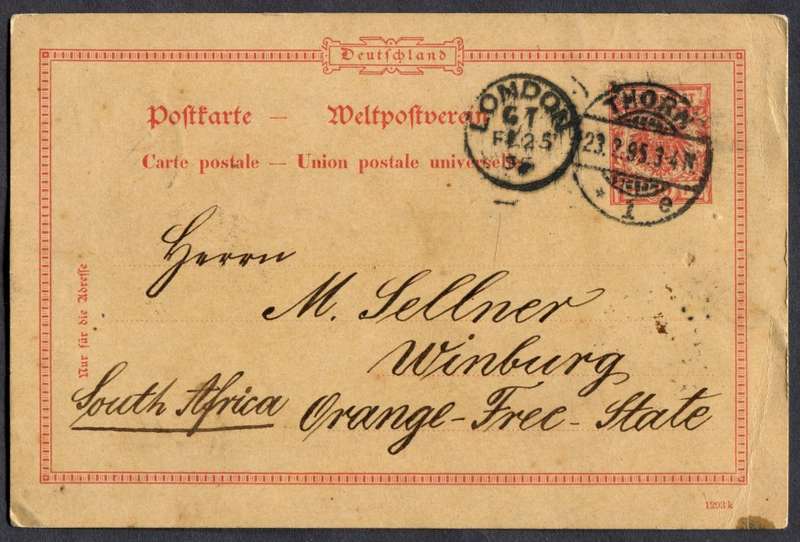 Deutschland
Postkarte — Weltpostverein
Carte postale — Union postale universelle
LONDON
G 7
FE 25
95
THORN
23.2.95.3-4N
* 1 e
Nur für die Adresse
Herrn
M. Sellner
Winburg
South Africa Orange-Free-State
1293 k